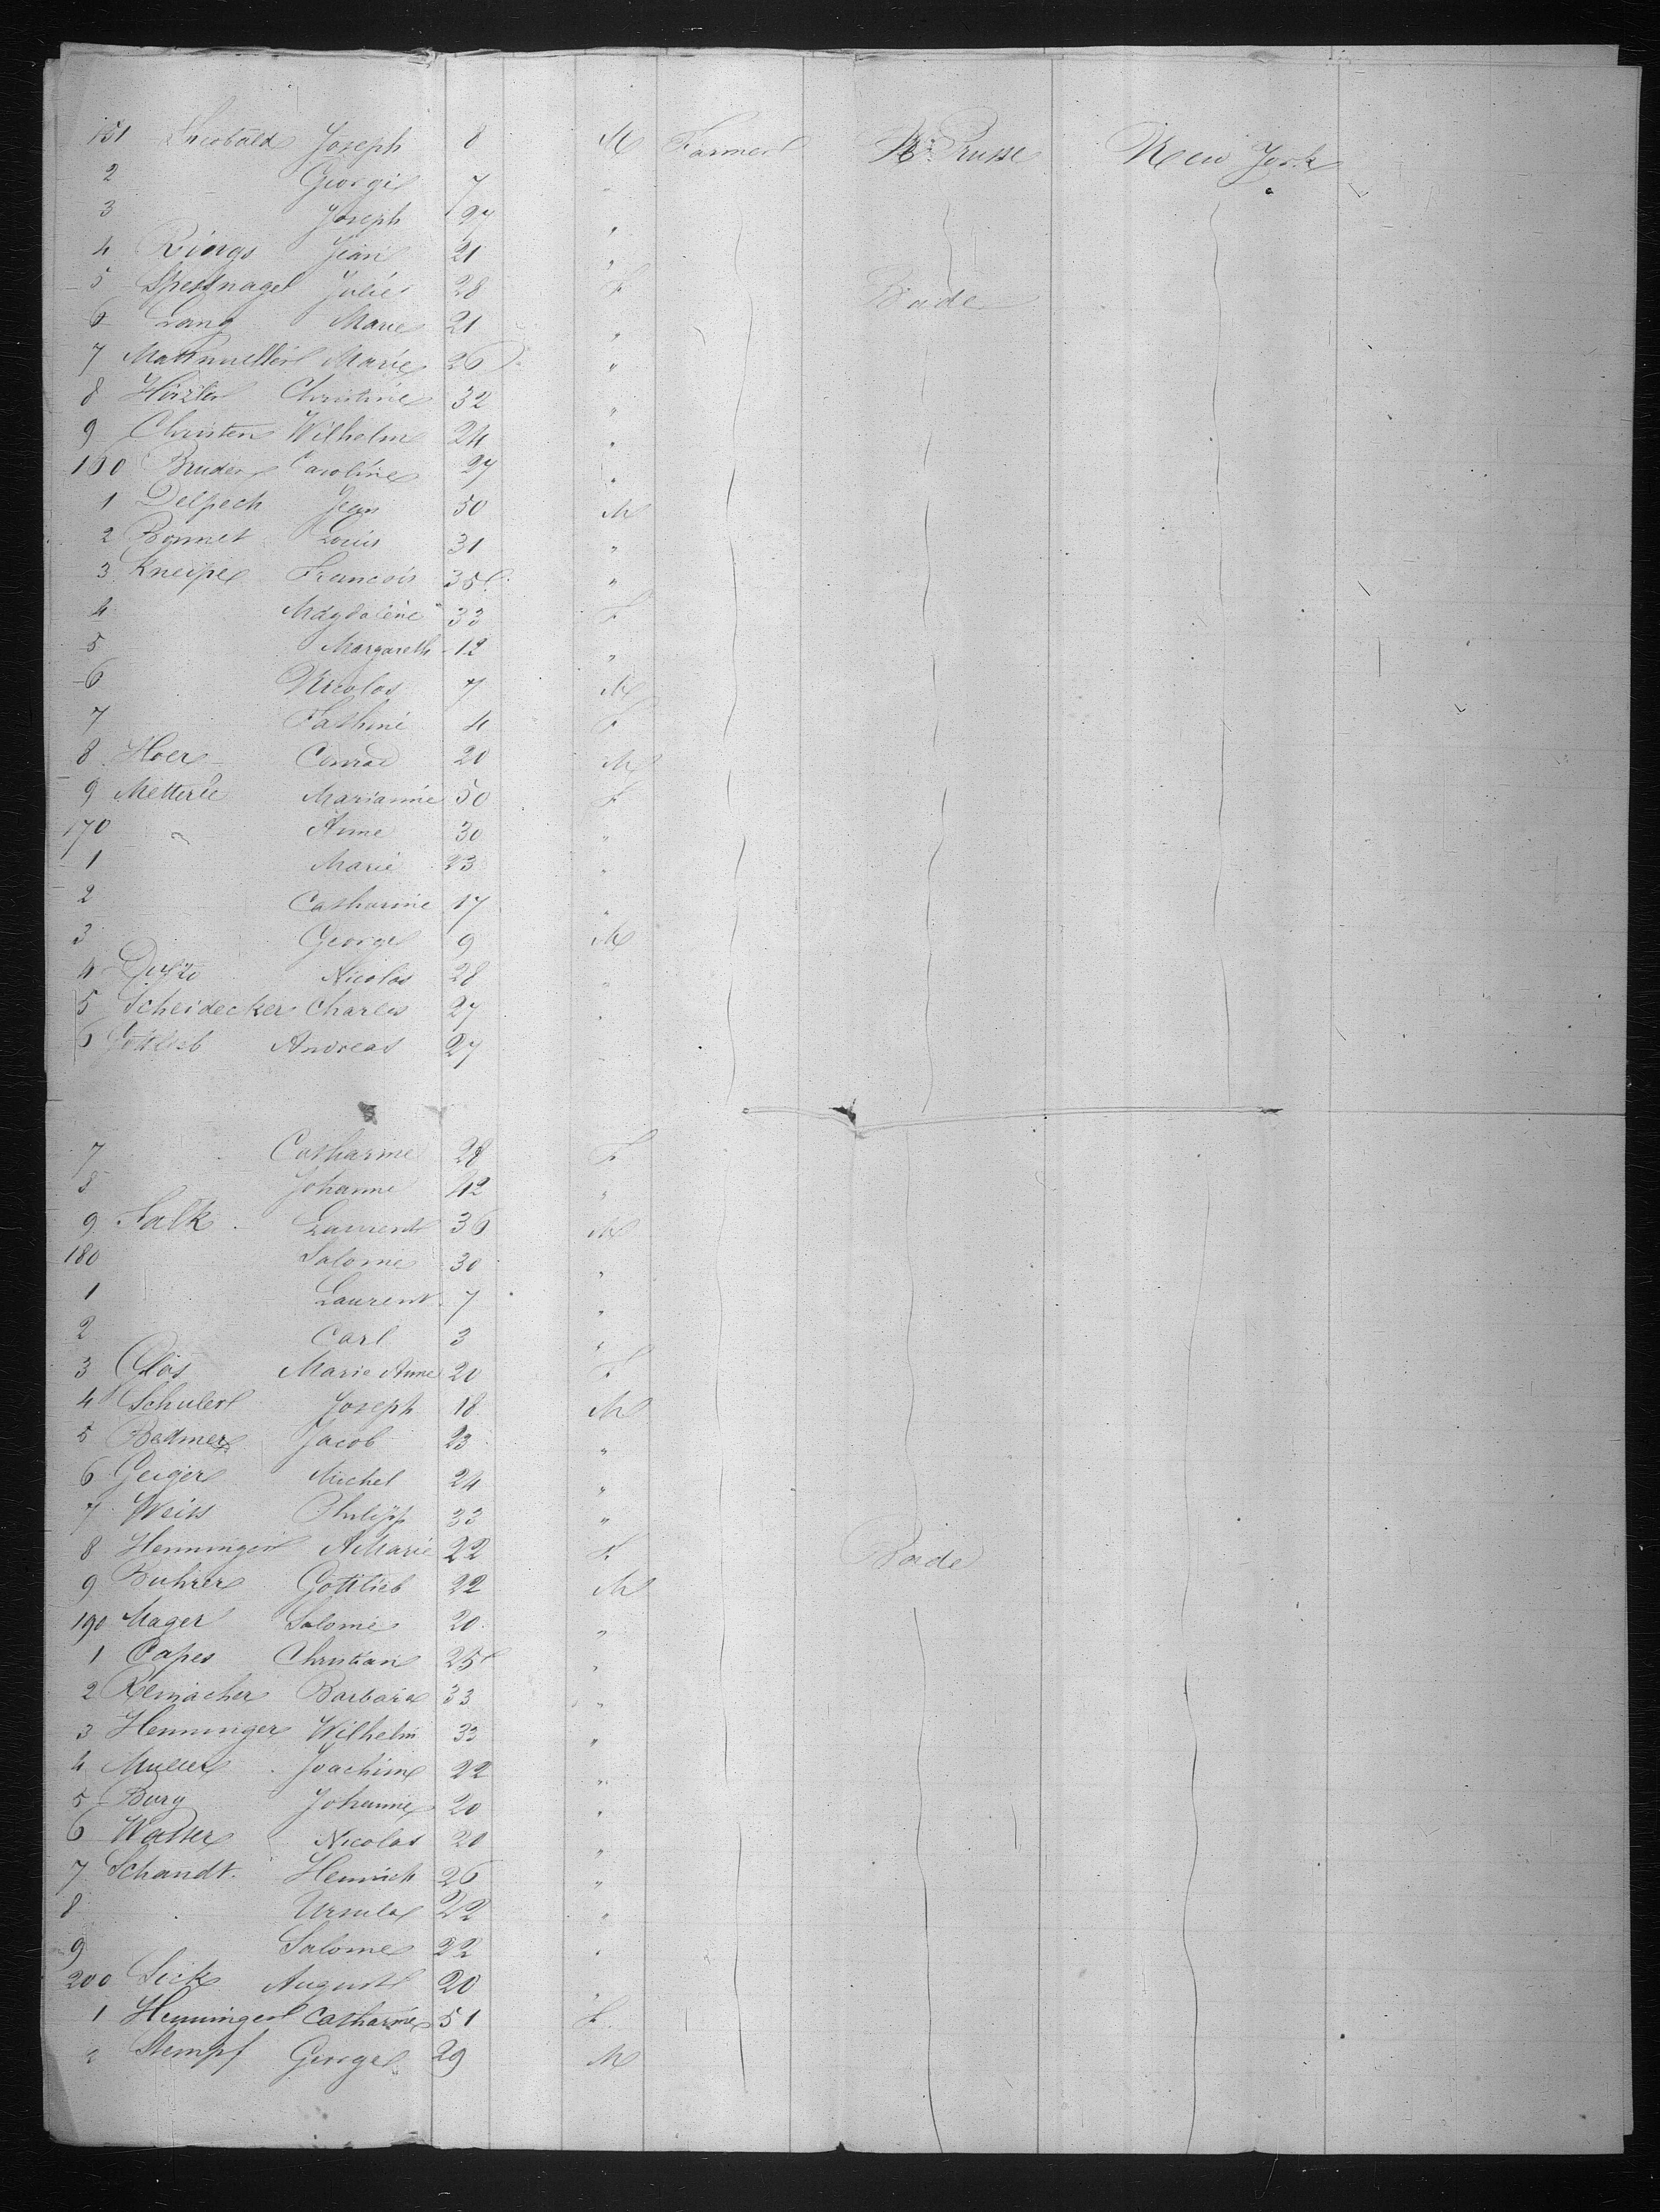 151 Theobald Joseph 8 M Farmer Prusse New York
2 George 7 "
3 Joseph 27 "
4 Rings Jean 21 "
5 Julie 28 F Bade
6 Lang Marie 21 "
7 Marie 26 "
8 Christine 32 "
9 Christen Wilhelm 24 "
160 Bruder Caroline 27 "
1 Delpech Jean 50 M
2 Bonnet Louis 31 "
3 Kneipe Francois 35 "
4 Magdalene 33 F
5 Margareth 12 "
6 Nicolas 7 M
7 4 F
8 Hoer Conrad 20 M
9 Marianne 50 F
170 " Anne 30 "
1 Marie 23 "
2 Catharine 17 "
3 George 9 M
4 Nicolas 28 "
5 Scheidecker Charles 27 "
6 Gottlieb Andreas 27 "
7 Catharine 28 F
8 Johanne 42 "
9 Falk Laurent 36 M
180 Salome 30 "
1 Laurent 7 "
2 Carl 3 "
3 Marie Anne 20 F
4 Schuler Joseph 18 M
5 Jacob 23 "
6 Geiger Michel 24 "
7 Weiss Philipp 33 "
8 Henninger A Marie 22 F Bade
9 Buhrer Gottlieb 22 M
190 Mager Salome 20 "
1 Papes Christian 25 "
2 Remacher Barbara 33 "
3 Henninger Wilhelm 33 "
4 Muller Joachim 22 "
5 Burg Johanne 20 "
6 Nicolas 20 "
7 Schandt Heinrich 26 "
8 Ursula 22 "
9 Salome 22 "
200 Sick August 20 "
1 Henninger Catharine 51 F
2 Stempf George 29 M